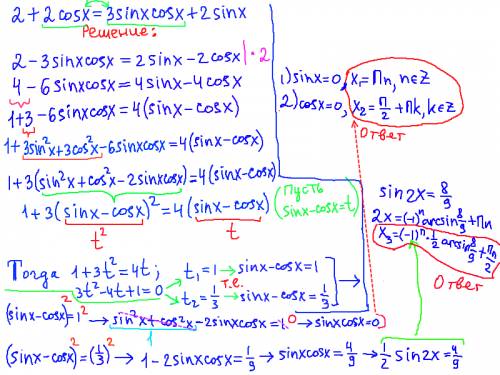 2 + 2cosx = 3sinxcosx + 2sinx
Решение:
2 - 3sinxcosx = 2sinx - 2cosx | · 2
4 - 6sinxcosx = 4sinx - 4cosx
1+3 - 6sinxcosx = 4(sinx - cosx)
1 + 3sin²x + 3cos²x - 6sinxcosx = 4(sinx - cosx)
1 + 3(sin²x + cos²x - 2sinxcosx) = 4(sinx - cosx)
(Пусть sinx - cosx = t)
1 + 3(sinx - cosx)² = 4(sinx - cosx)
t² t
Тогда 1 + 3t² = 4t;
3t² - 4t + 1 = 0
t₁ = 1 → sinx - cosx = 1
т.е.
t₂ = 1/3 → sinx - cosx = 1/3
(sinx - cosx)² = 1² → sin²x + cos²x - 2sinxcosx = 1 0 → sinxcosx = 0
1
(sinx - cosx)² = (1/3)² → 1 - 2sinxcosx = 1/9 → sinxcosx = 4/9 → 1/2 sin2x = 4/9
1) sinx = 0, x₁ = Пn, n∈Z
2) cosx = 0, x₂ = П/2 + Пk, k∈Z
Ответ
sin2x = 8/9
2x = (-1)ⁿ arcsin 8/9 + Пn
x₃ = (-1)ⁿ · 1/2 arcsin 8/9 + Пn/2
Ответ